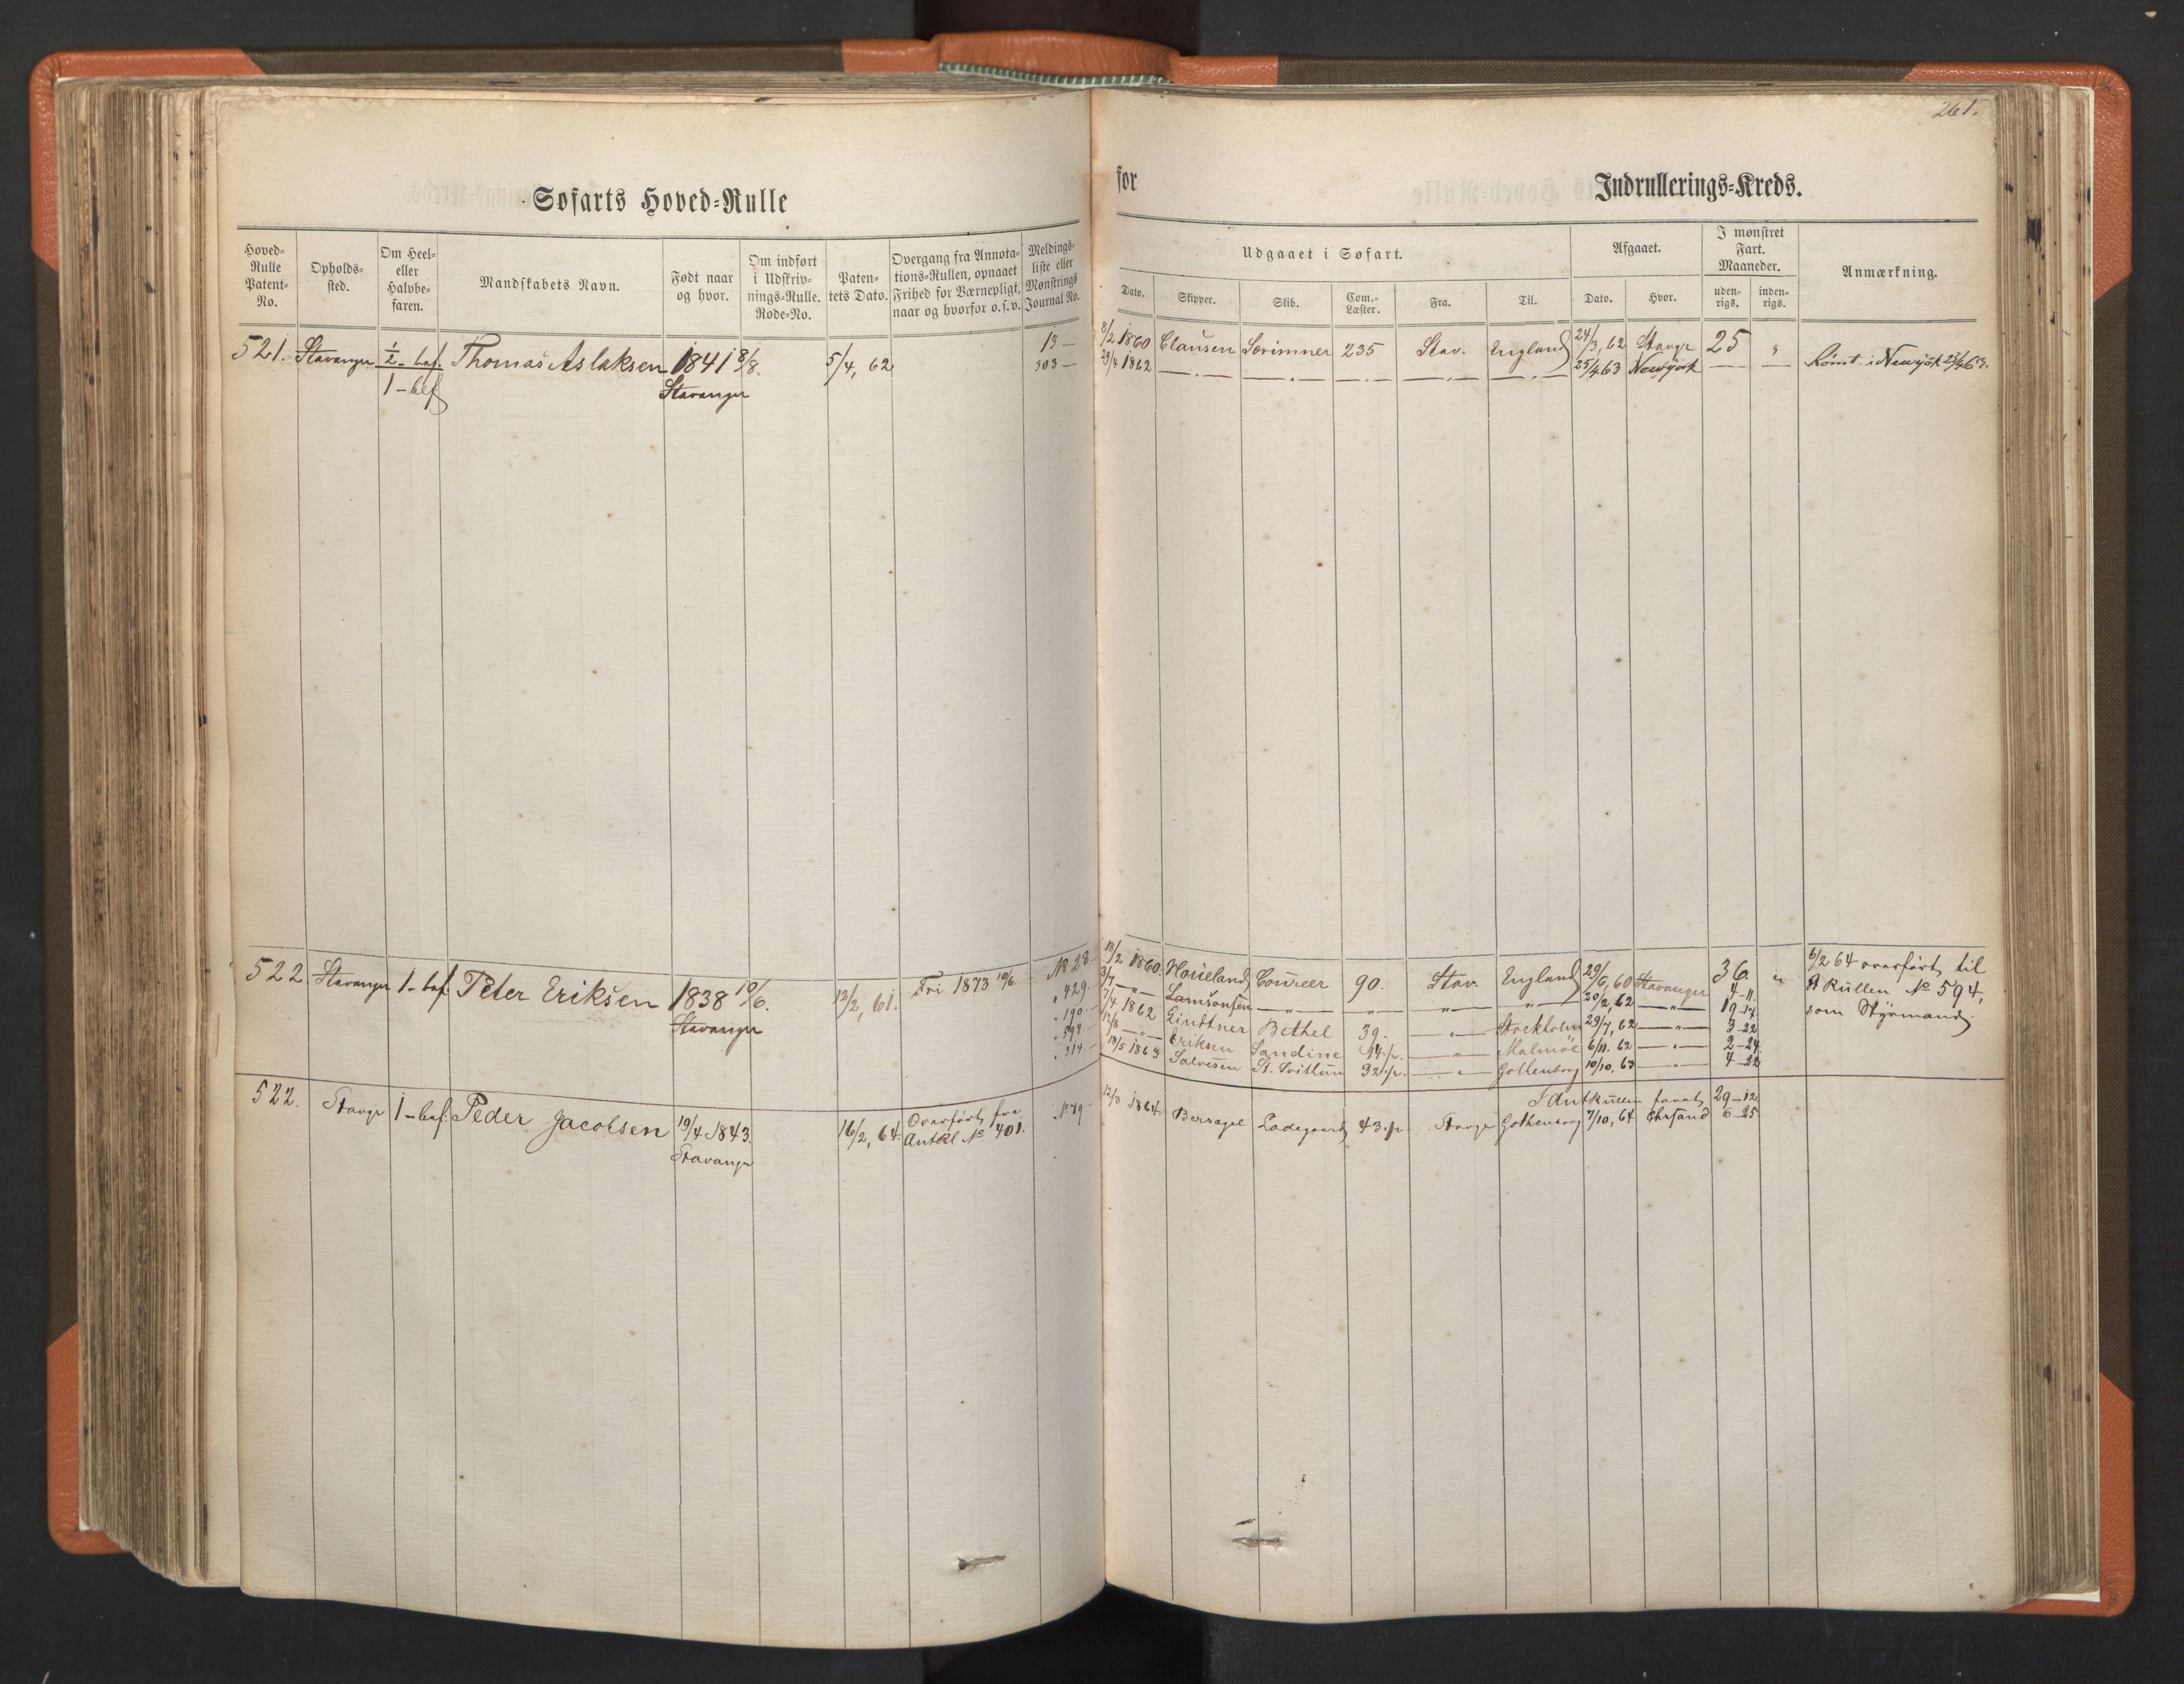 261.
Søfarts Hoved-Rulle
for
Indrullerings-Kreds.
Hoved-Rulle Patent-No.
Opholds-sted.
Om Heel- eller Halvbe-faren.
Mandskabets Navn.
Født naar og hvor.
Om indført i Udskriv-nings-Rulle. Rode-No.
Paten-tets Dato.
Overgang fra Annota-tions-Rullen, opnaaet Frihed for Værnepligt, naar og hvorfor o.s.v.
Meldings-liste eller Mønstrings Journal No.
Udgaaet i Søfart.
Dato.
Skipper.
Skib.
Com.-Læster.
Fra.
Til.
Afgaaet.
Dato.
Hvor.
I mønstret Fart. Maaneder.
uden-rigs.
inden-rigs.
Anmærkning.
521. Stavanger ½-bef. Thomas Aslaksen 1841 8/8. 5/4, 62 13 — 8/2 1860 Clausen Særimner 235 Stav. England 24/3, 62 Stavgr 25 "
1-bef Stavanger 303 — 29/4 1862 — — — — — 25/4 63 Newyörk — — Römt i Newyörk 25/4 63.
522. Stavanger 1-bef. Peter Eriksen 1838 10/6. 12/2, 61. Fri 1873 10/6 № 28 13/2 1860. Houeland Coureer 90. Stav. England 29/6, 60 Stavanger 36. " 6/2 64 overført til
Stavanger " 429 3/7 — " — Lamsonsen — " — — " — — " — — " — 20/2, 62 — " — 4-11. A Rullen № 594,
" 190 7/4 1862 Lindtner Bethel 39. — " — Stockholm 29/7, 62 — " — 19-17 som Styrmand
" 599 12/8 — " — Eriksen Sandine 14 p. — " — Malmöe 6/11. 62 — " — 3-22
" 314 13/5 1863 Salvesen St. Svithun 32 p. — " — Gottenborg 10/10, 63 — " — 2-24
4-22
522. Stavgr 1-bef. Peder Jacobsen 19/4 1843. 16/2, 64. Overført fra № 79 12/3 1864. Bersagel Ladegaard 43 p Stavgr Gothenborg 7/10, 64 Chrsand 6-25
Stavanger AntRl № 401.
I AntRullen faret 29-12